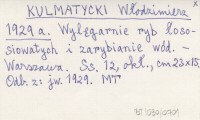 KULMATYCKI Włodzimierz
1929 a. Wylęgarnie ryb łoso-
siowatych i zarybianie wód. –
Warszawa. Ss. 12, okł., cm 23x15.
Odb. z: jw. 1929. MT